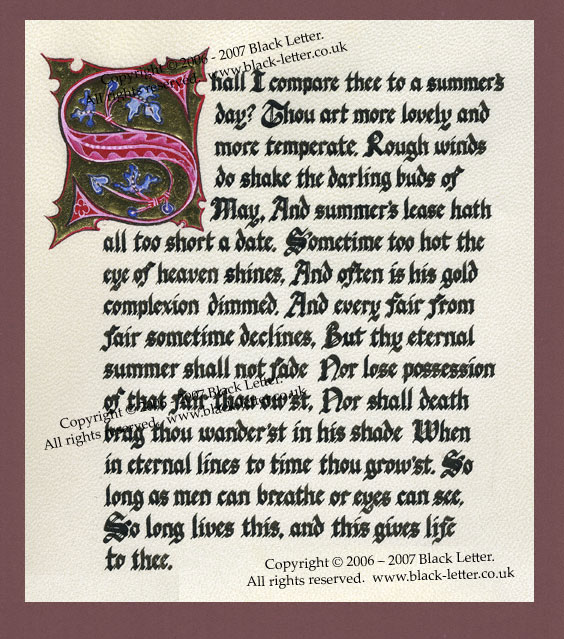 Shall I compare thee to a summer's
day? Thou art more lovely and
more temperate. Rough winds
do shake the darling buds of
May, And summer's lease hath
all too short a date. Sometime too hot the
eye of heaven shines, And often is his gold
complexion dimmed, And every fair from
fair sometime declines, But thy eternal
summer shall not fade Nor lose possession
of that fair thou ow'st, Nor shall death
brag thou wander'st in his shade When
in eternal lines to time thou grow'st. So
long as men can breathe or eyes can see,
So long lives this, and this gives life
to thee.
Copyright © 2006 - 2007 Black Letter.
All rights reserved. www.black-letter.co.uk
Copyright © 2006 - 2007 Black Letter.
All rights reserved. www.black-letter.co.uk
Copyright © 2006 – 2007 Black Letter.
All rights reserved. www.black-letter.co.uk